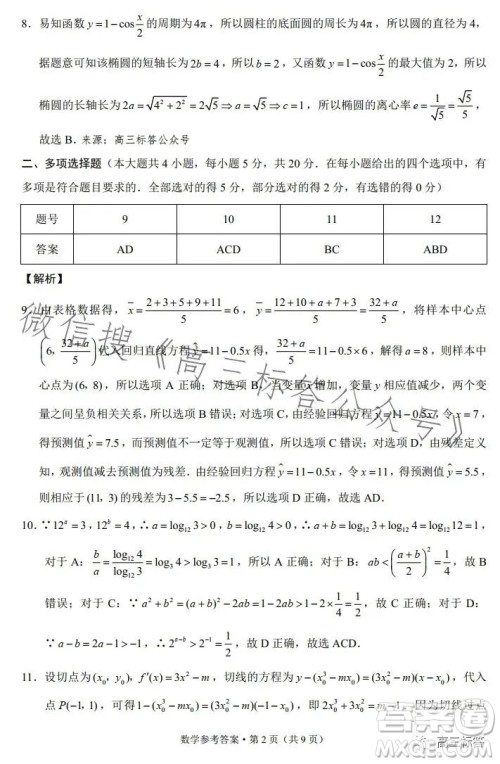 8．易知函数 y=1-cos x/2 的周期为4π，所以圆柱的底面圆的周长为4π，所以圆的直径为 4，
据题意可知该椭圆的短轴长为2b=4，所以b=2，又函数 y=1-cos x/2 的最大值为 2，所以
椭圆的长轴长为 2a=√(4²+2²)=2√5⇒a=√5⇒c=1，所以椭圆的离心率 e=1/√5=√5/5，
故选 B．来源：高三标答公众号
二、多项选择题（本大题共 4 小题，每小题 5 分，共 20 分．在每小题给出的四个选项中，有
多项是符合题目要求的．全部选对的得 5 分，部分选对的得 2 分，有选错的得 0 分）
题号 9 10 11 12
答案 AD ACD BC ABD
【解析】
9．由表格数据得，x̄=(2+3+5+9+11)/5=6，ȳ=(12+10+a+7+3)/5=(32+a)/5，将样本中心点
(6，(32+a)/5)代入回归直线方程ŷ=11-0.5x得，(32+a)/5=11-0.5×6，解得a=8，则样本中
心点为(6，8)，所以选项 A 正确；对选项 B，当变量x增加，变量 y 相应值减少，两个变
量之间呈负相关关系，所以选项 B 错误；对选项 C，由经验回归方程ŷ=11-0.5x，令x=7，
得预测值ŷ=7.5，而预测值不一定等于观测值，所以选项 C 错误；对选项 D，由残差定义
知，观测值减去预测值为残差．由经验回归方程ŷ=11-0.5x，令x=11，得预测值ŷ=5.5，
则相应于(11，3)的残差为3-5.5=-2.5，所以选项 D 正确，故选 AD．
10．∵12ᵃ=3，12ᵇ=4，∴a=log₁₂3>0，b=log₁₂4>0，∴a+b=log₁₂3+log₁₂4=log₁₂12=1，
对于 A：b/a=log₁₂4/log₁₂3=log₃4>log₃3=1，所以 A 正确；对于 B：ab<((a+b)/2)²=1/4，故 B
错误；对于 C：∵a²+b²=(a+b)²-2ab=1-2ab>1-2×1/4=1/2，故 C 正确；对于 D：
∵a-b=2a-1>-1，∴2ᵃ⁻ᵇ>2⁻¹=1/2，故 D 正确，故选 ACD．
11．设切点为(x₀，y₀)，f′(x)=3x²-m，切线的方程为y-(x₀³-mx₀)=(3x₀²-m)(x-x₀)，代入
点 P(-1，1)，可得1-(x₀³-mx₀)=(3x₀²-m)(-1-x₀)，
数学参考答案·第 2 页（共 9 页）
微信搜《高三标答公众号》
高三标答